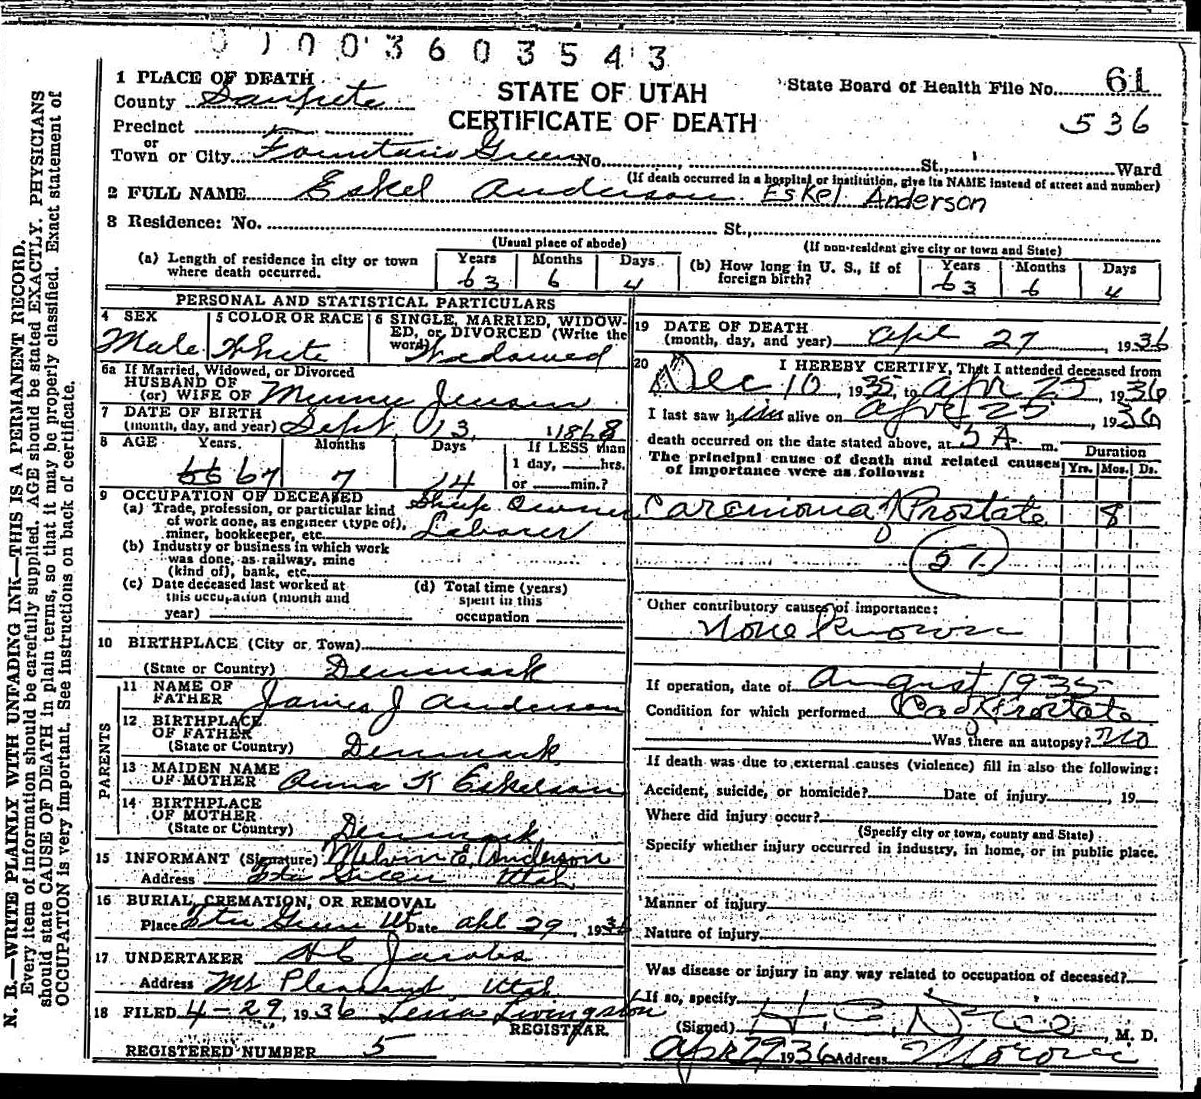 0 1 0 0 3 6 0 3 5 4 3
1 PLACE OF DEATH
County Sanpete
STATE OF UTAH
CERTIFICATE OF DEATH
State Board of Health File No. 61
536
Precinct
or
Town or City Fountain Green No. St., Ward
(If death occurred in a hospital or institution, give its NAME instead of street and number)
2 FULL NAME Eskel Anderson Eskel Anderson
3 Residence: No. St.,
(Usual place of abode) (If non-resident give city or town and State)
(a) Length of residence in city or town where death occurred. Years 63 Months 6 Days 4
(b) How long in U. S., if of foreign birth? Years 63 Months 6 Days 4
PERSONAL AND STATISTICAL PARTICULARS
4 SEX Male
5 COLOR OR RACE White
6 SINGLE, MARRIED, WIDOWED, or DIVORCED (Write the word) Widowed
6a If Married, Widowed, or Divorced
HUSBAND OF
(or) WIFE OF Jensen
7 DATE OF BIRTH
(month, day, and year) Sept 13, 1868
8 AGE Years 67 Months 7 Days 14
If LESS than
1 day, hrs.
or min.?
9 OCCUPATION OF DECEASED
(a) Trade, profession, or particular kind
of work done, as engineer (type of),
miner, bookkeeper, etc. Sheep Owner
Laborer
(b) Industry or business in which work
was done, as railway, mine
(kind of), bank, etc.
(c) Date deceased last worked at
this occupation (month and
year)
(d) Total time (years)
spent in this
occupation
10 BIRTHPLACE (City or Town)
(State or Country) Denmark
PARENTS
11 NAME OF
FATHER James J Anderson
12 BIRTHPLACE
OF FATHER
(State or Country) Denmark
13 MAIDEN NAME
OF MOTHER Anna K Eskelson
14 BIRTHPLACE
OF MOTHER
(State or Country) Denmark
15 INFORMANT (Signature) Melvin E. Anderson
Address Ftn Green Utah
16 BURIAL, CREMATION, OR REMOVAL
Place Ftn Green Ut Date Apl 29, 1936
17 UNDERTAKER H C Jacobs
Address Mt Pleasant Utah
18 FILED 4-29, 1936 Lena Livingston
REGISTRAR.
REGISTERED NUMBER 5
19 DATE OF DEATH
(month, day, and year) Apl 27, 1936
20 I HEREBY CERTIFY, That I attended deceased from
Dec 10, 1935, to Apr 25, 1936
I last saw him alive on Apr 25, 1936
death occurred on the date stated above, at 3 A m.
The principal cause of death and related causes
of importance were as follows:
Duration
Yrs. Mos. Ds.
Carcinoma of Prostate 8
51
Other contributory causes of importance:
None Known
If operation, date of August 1935
Condition for which performed Ca of Prostate
Was there an autopsy? No
If death was due to external causes (violence) fill in also the following:
Accident, suicide, or homicide? Date of injury , 19
Where did injury occur?
(Specify city or town, county and State)
Specify whether injury occurred in industry, in home, or in public place.
Manner of injury
Nature of injury
Was disease or injury in any way related to occupation of deceased?
If so, specify
(Signed) H. C. , M. D.
Apr 29 1936 Address Moroni
N. B.—WRITE PLAINLY WITH UNFADING INK—THIS IS A PERMANENT RECORD.
Every item of information should be carefully supplied. AGE should be stated EXACTLY. PHYSICIANS
should state CAUSE OF DEATH in plain terms, so that it may be properly classified. Exact statement of
OCCUPATION is very important. See instructions on back of certificate.